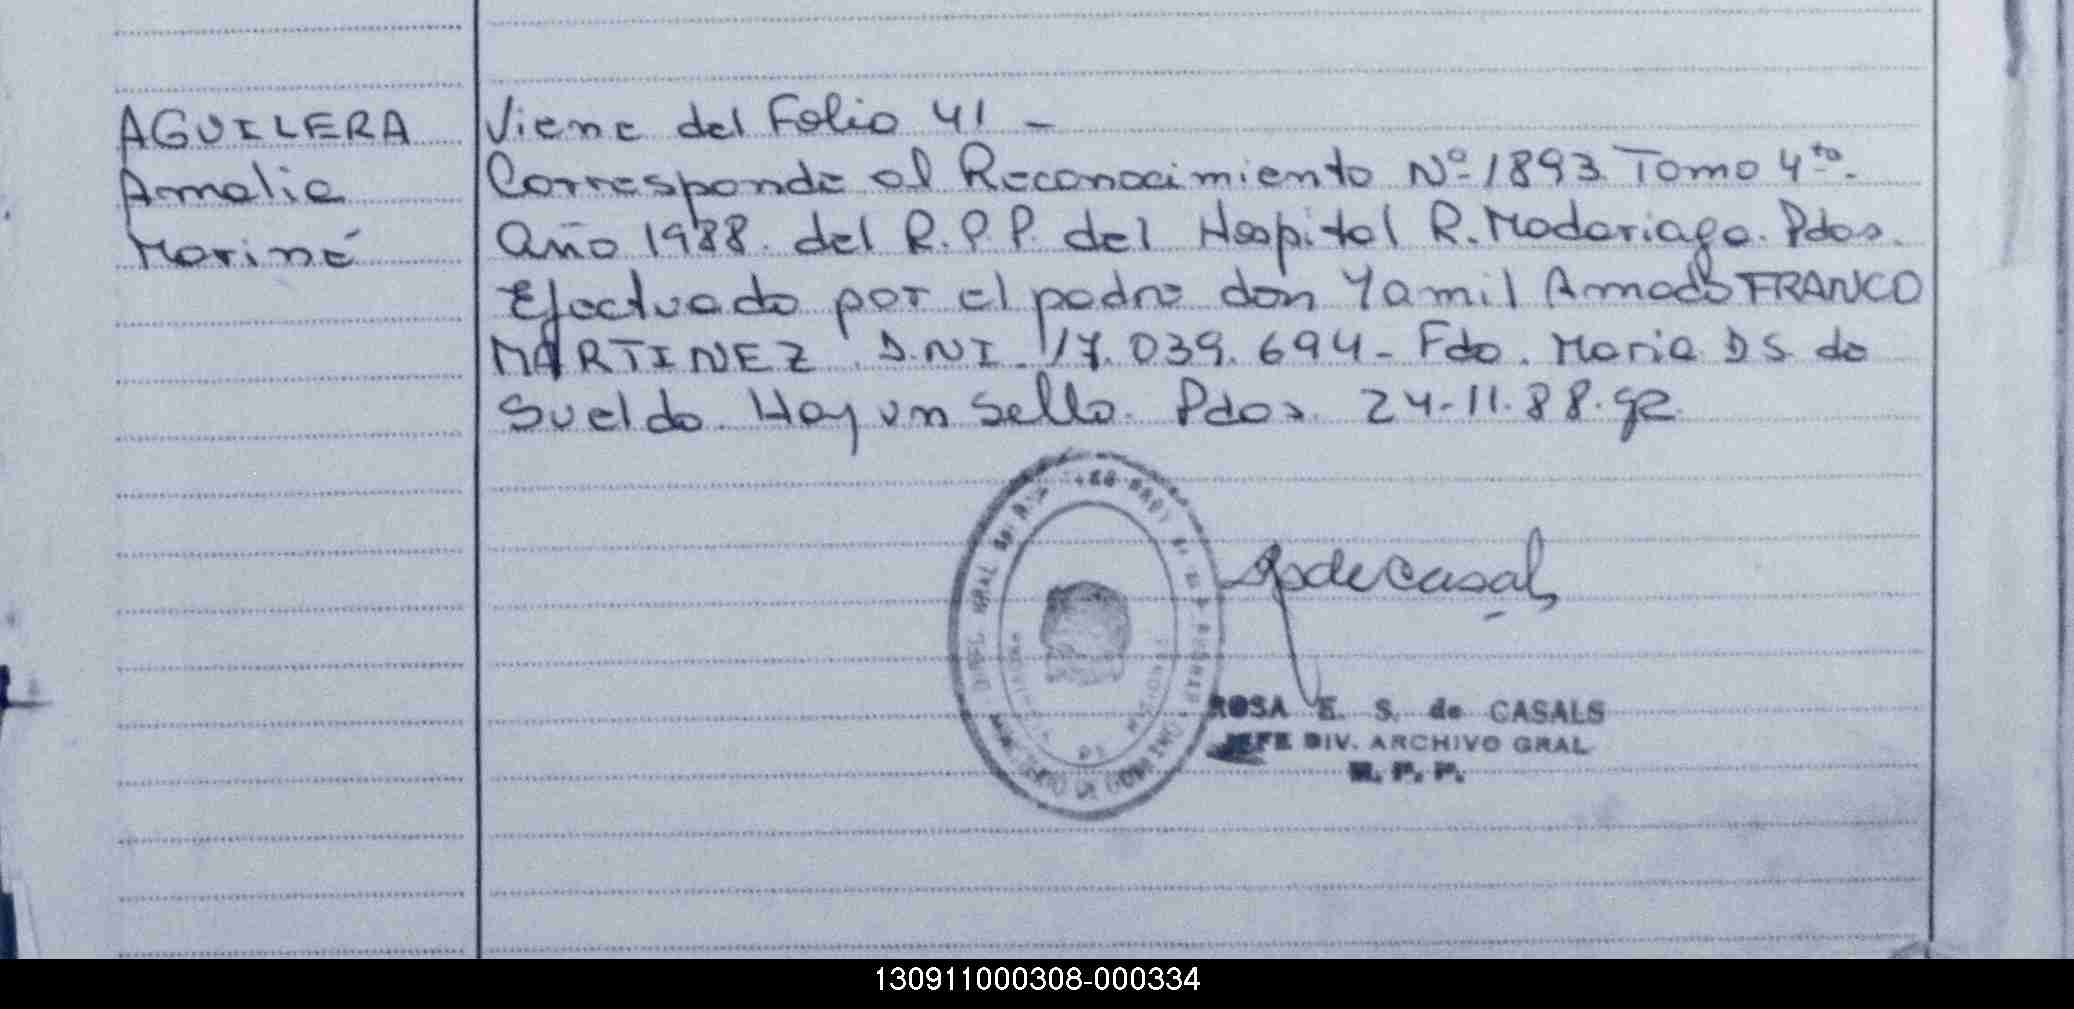 AGUILERA
Amalia
Mariné
Viene del Folio 41 -
Corresponde al Reconocimiento Nº 1893 Tomo 4to.
Año 1988. del R.P.P. del Hospital R. Madariaga. Pdas.
Efectuado por el padre don Yamil Amado FRANCO
MARTINEZ. D.N.I. 17.039.694- Fdo. Maria D S de
Sueldo. Hay un sello. Pdas. 24-11-88.
MINISTERIO DE GOBIERNO
ROSA E. S. de CASALS
JEFE DIV. ARCHIVO GRAL
R. P. P.
130911000308-000334